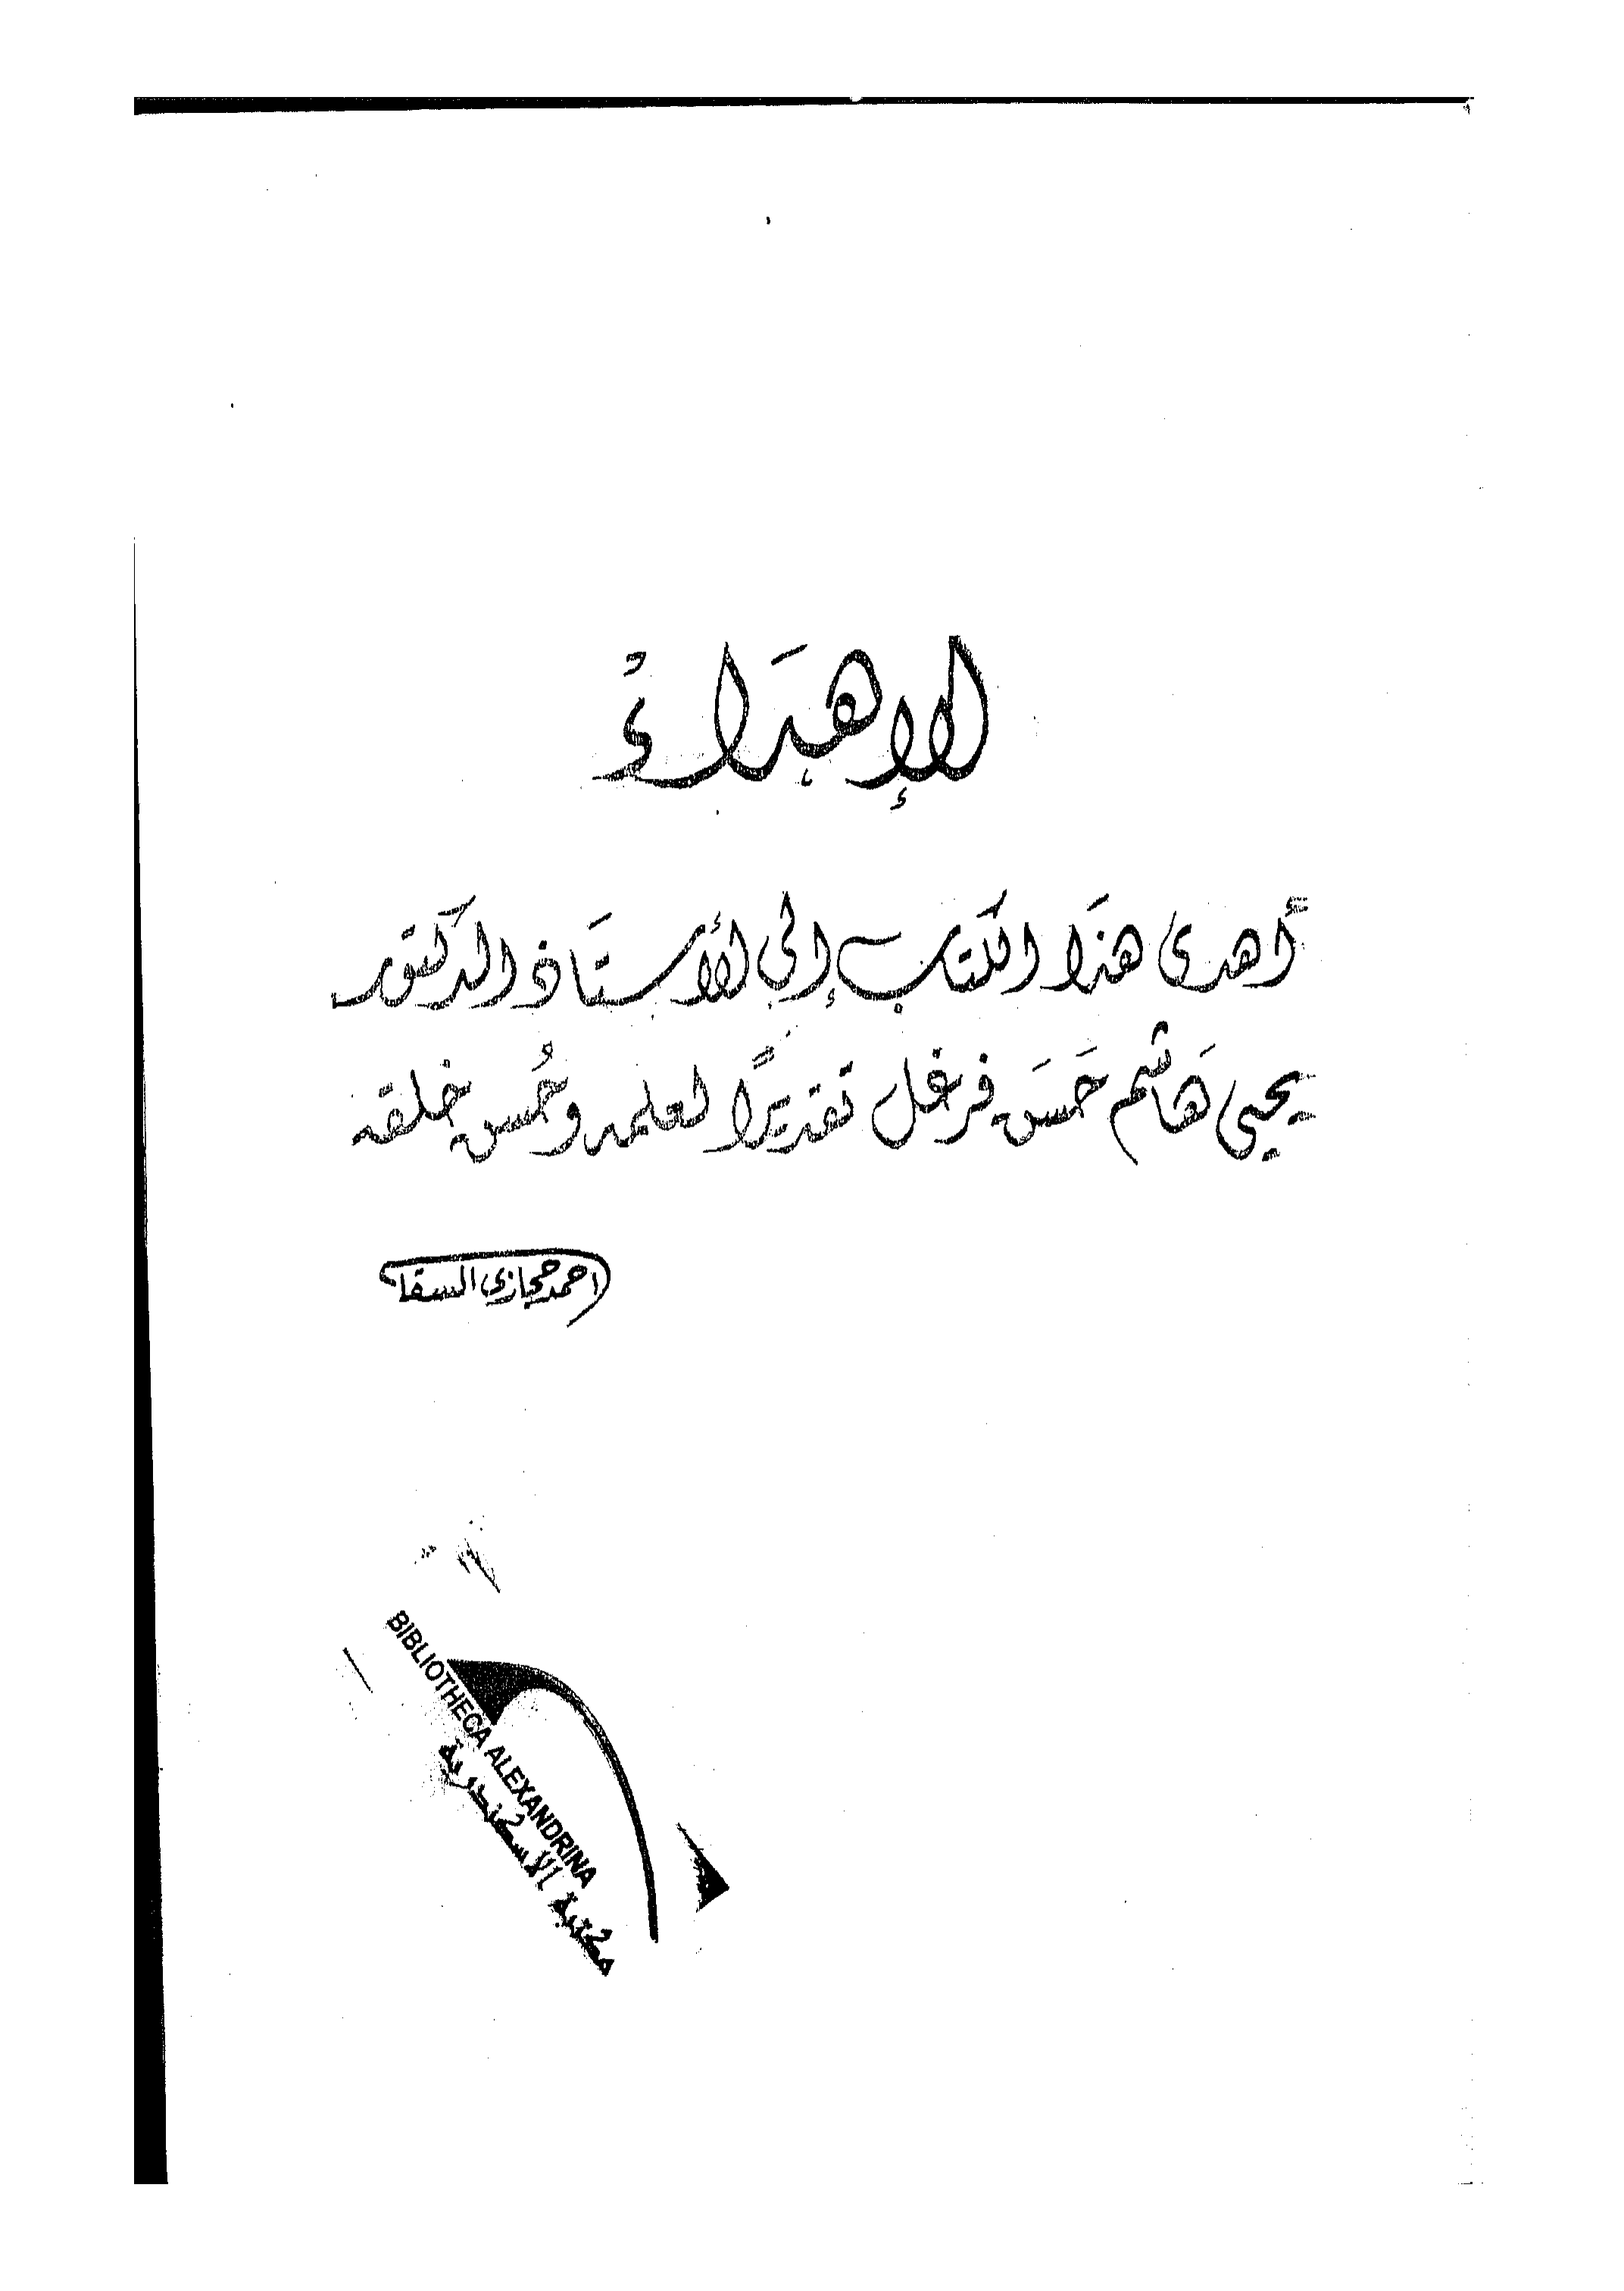 الإهداء
أهدى هذا الكتاب إلى الأستاذ الدكتور
يحيى هاشم حسن فرغل تقديرًا لعلمه وحُسن خلقه
احمد حجازى السقا
BIBLIOTHECA ALEXANDRINA
مكتبة الاسكندرية